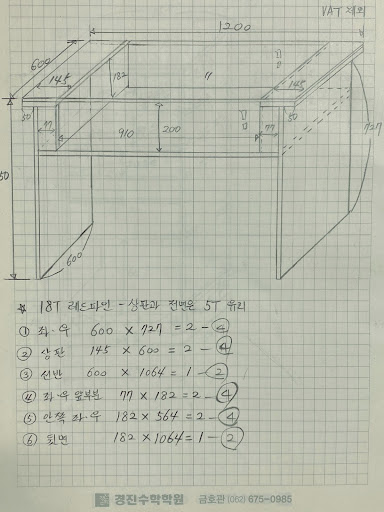 VAT 제외
1200
600
145
182
〃
145
50
77
910
200
77
50
727
50
600
☆ 18T 레드파인 - 상판과 전면은 5T 유리
① 좌·우 600 × 727 = 2 - ④
② 상판 145 × 600 = 2 - ④
③ 선반 600 × 1064 = 1 - ②
④ 좌·우 앞부분 77 × 182 = 2 - ④
⑤ 안쪽 좌·우 182 × 564 = 2 - ④
⑥ 뒷면 182 × 1064 = 1 - ②
경진수학학원 금호관 (062) 675-0985